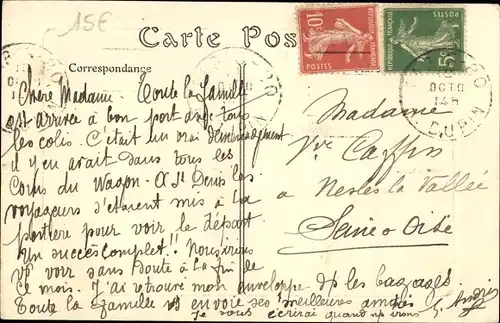 15€
Carte Pos
Correspondance
10c
REPUBLIQUE FRANÇAISE
POSTES
5c
OCTO
14H
DUPIN
Chère Madame Toute la famille
est arrivée à bon port avec tous
les colis. C'était un vrai déménagement
il y en avait dans tous les
coins du Wagon - A St Denis les
voyageurs s'étaient mis à la
portière pour voir le départ
Un succès complet!! Nous irons
vs voir sans doute à la fin de
ce mois. J'ai retrouvé mon enveloppe ds les bagages
Toute la famille vs envoie ses meilleures amitiés
Je vous écrirai quand ns irons
Madame
Vve Caffin
à Nesles la Vallée
Seine & Oise